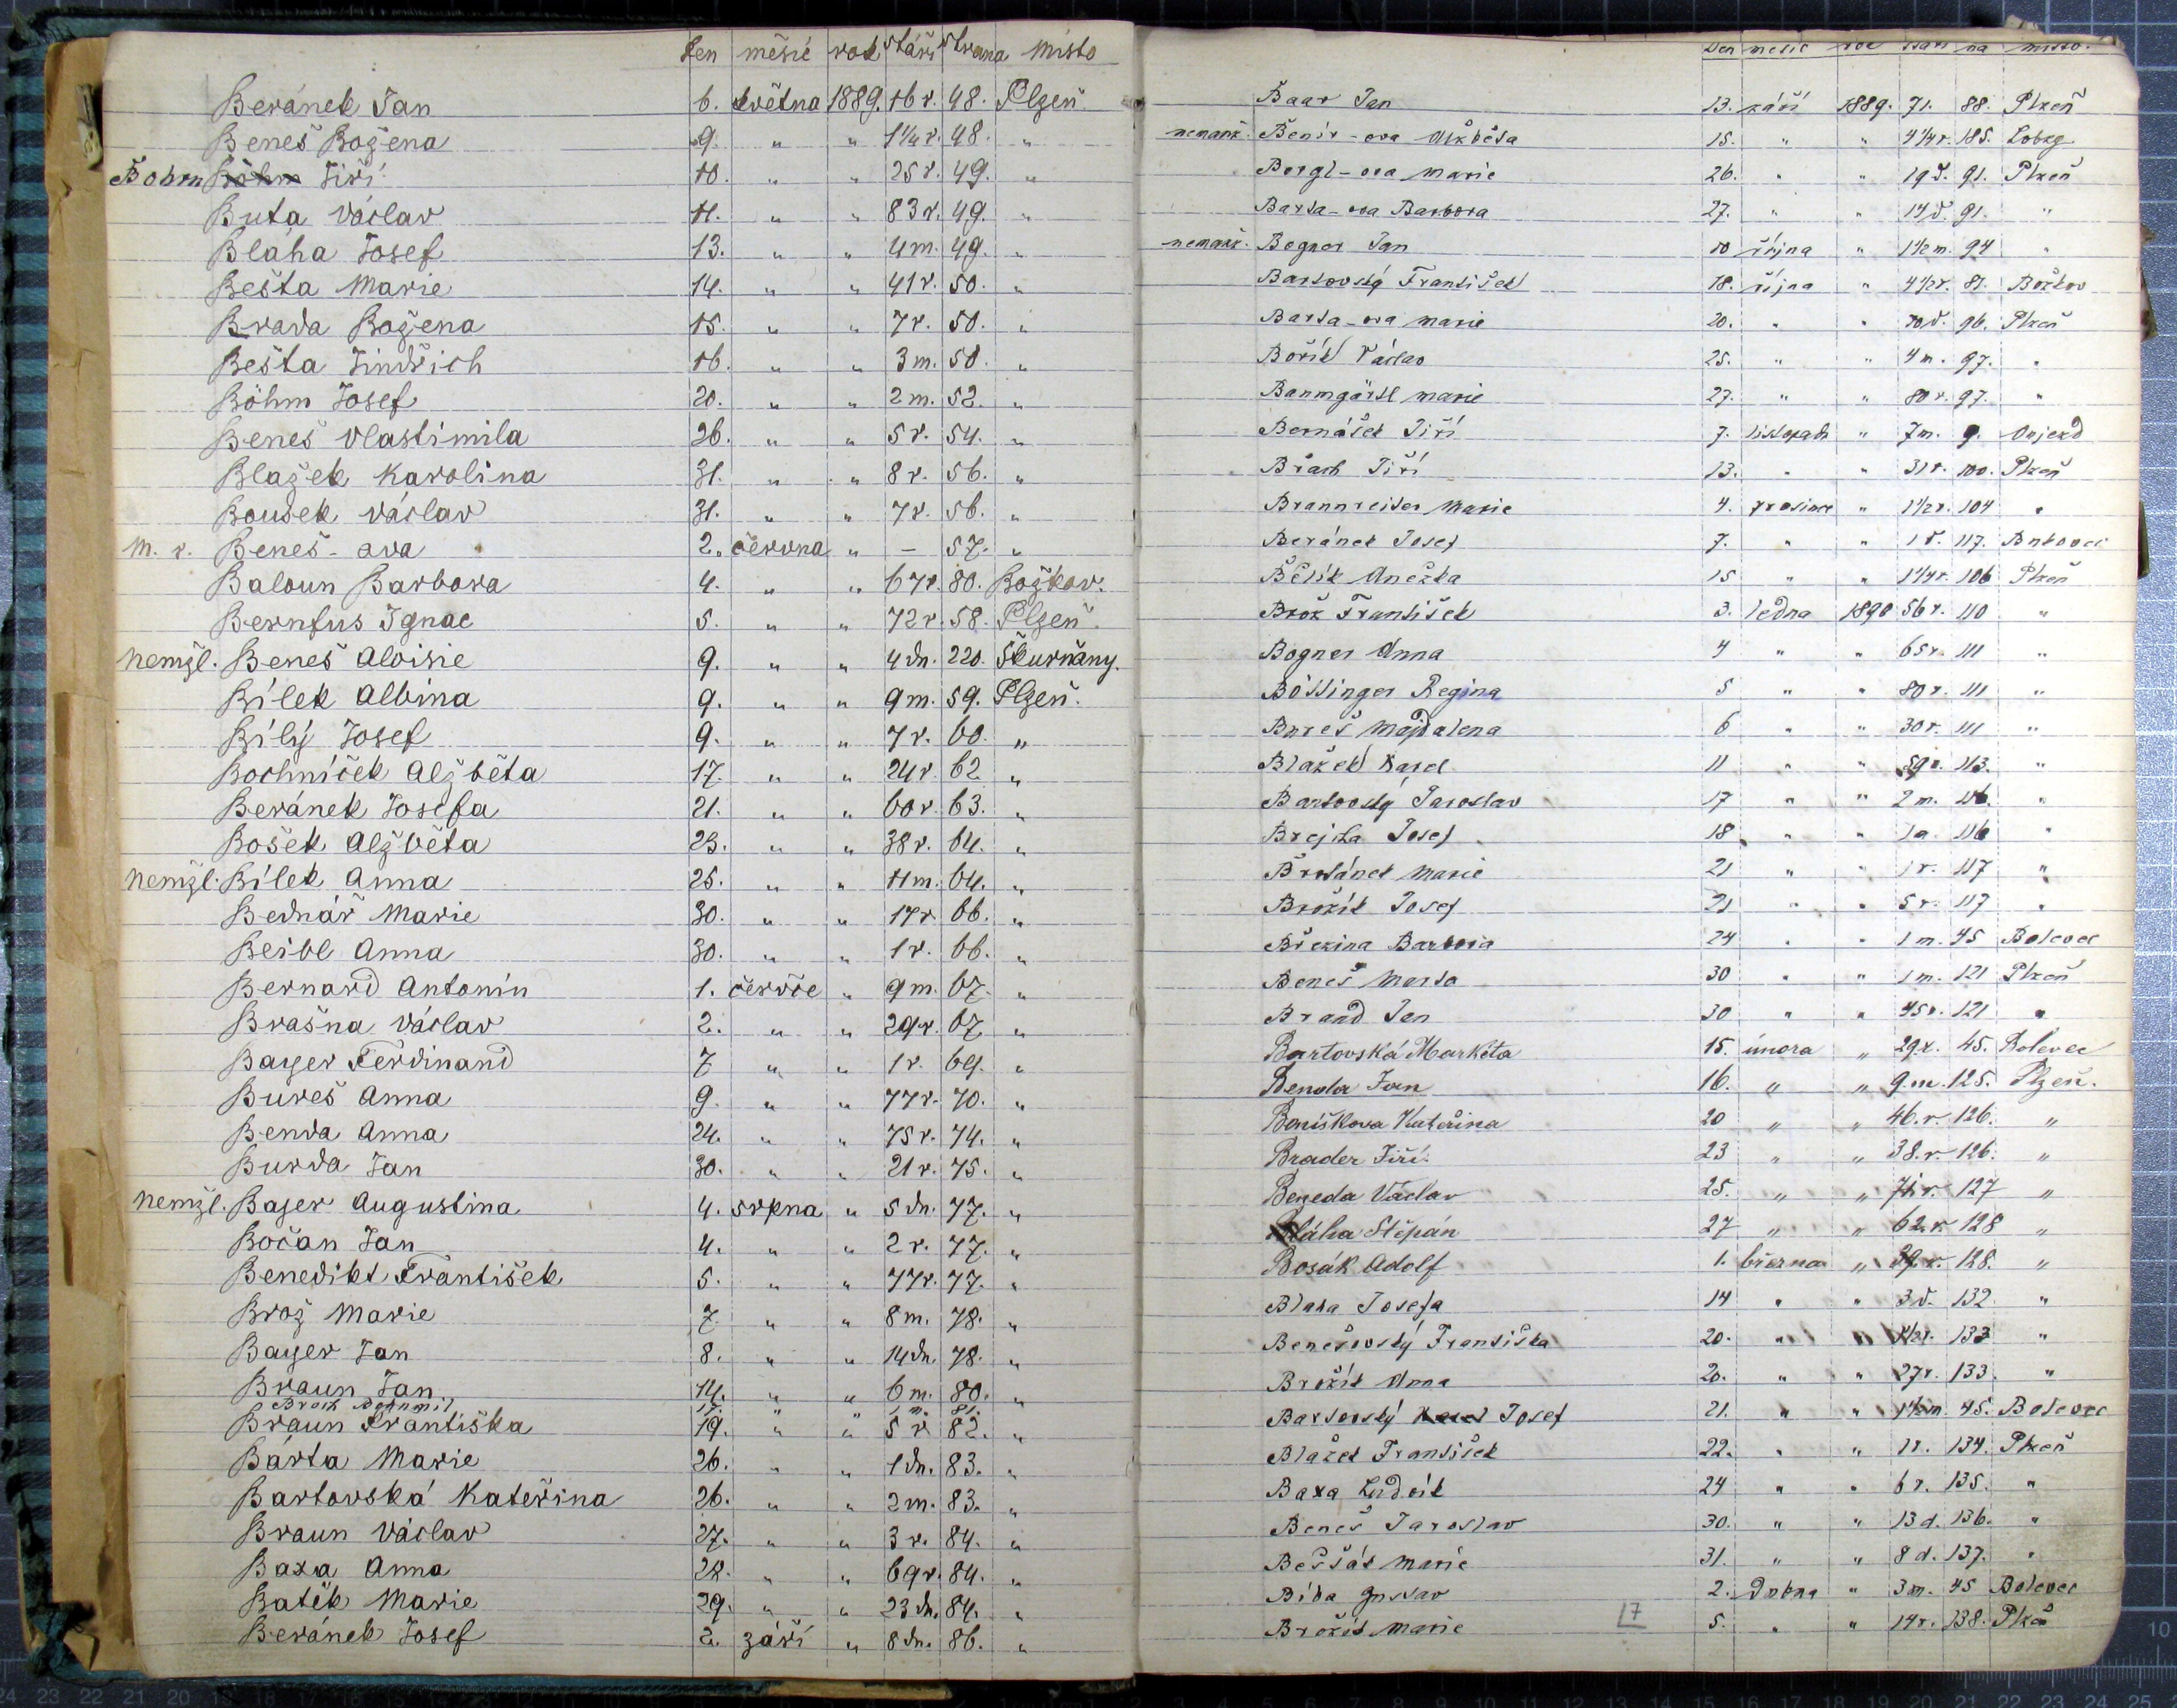 den měsíc rok stáří strana místo
Beránek Jan 6. května 1889. 16 r. 48. Plzeň
Beneš Božena 9. " " 1 1/4 r. 48. "
Böhm Böhm Jiří 10. " " 25 r. 49. "
Buta Václav 11. " " 83 r. 49. "
Bláha Josef 13. " " 4 m. 49. "
Bešta Marie 14. " " 41 r. 50. "
Brada Božena 15. " " 7 r. 50. "
Bešta Jindřich 16. " " 3 m. 50. "
Böhm Josef 20. " " 2 m. 52. "
Beneš Vlastimila 26. " " 5 r. 54. "
Blažek Karolina 31. " " 8 r. 56. "
Bousek Václav 31. " " 7 r. 56. "
m. r. Beneš-ova 2. června " – 57. "
Baloun Barbora 4. " " 67 r. 80. Božkov.
Bernfus Ignac 5. " " 72 r. 58. Plzeň.
nemžl. Beneš Aloisie 9. " " 4 dn. 220. Škurňany.
Bílek Albina 9. " " 9 m. 59. Plzeň.
Bílý Josef 9. " " 7 r. 60. "
Bochníček Alžběta 17. " " 24 r. 62 "
Beránek Josefa 21. " " 60 r. 63. "
Bošek Alžběta 23. " " 38 r. 64. "
nemžl. Bílek Anna 25. " " 11 m. 64. "
Bednář Marie 30. " " 17 r. 66. "
Beibl Anna 30. " " 1 r. 66. "
Bernard Antonín 1. červče " 9 m. 67. "
Brašna Václav 2. " " 29 r. 67. "
Bayer Ferdinand 7 " " 1 r. 69. "
Bureš Anna 9. " " 77 r. 70. "
Benda Anna 24. " " 75 r. 74. "
Burda Jan 30. " " 21 r. 75. "
nemžl. Bajer Augustina 4. srpna " 5 dn. 77. "
Bočan Jan 4. " " 2 r. 77. "
Benedikt František 5. " " 77 r. 77. "
Brož Marie 7. " " 8 m. 78. "
Bayer Jan 8. " " 14 dn. 78. "
Braun Jan 14. " " 6 m. 80. "
Broch Bohumil 17. " " 1 m. 81.
Braun Františka 19. " " 5 r. 82. "
Bárta Marie 26. " " 1 dn. 83. "
Bartovská Kateřina 26. " " 2 m. 83. "
Braun Václav 27. " " 3 r. 84. "
Baxa Anna 28. " " 69 r. 84. "
Batěk Marie 29. " " 23 dn. 84. "
Beránek Josef 2. září " 8 dn. 86. "
Den měsíc rok stáří na místo.
Baar Jan 13. září 1889. 71. 88. Plzeň
nemanž. Benír-ova Alžběta 15. " " 4 1/4 r. 185. Lobzy
Bergl-ova Marie 26. " " 19 d. 91. Plzeň
Barta-ova Barbora 27. " " 14 d. 91. "
nemanž. Bogner Jan 10 října " 1 1/2 m. 94 "
Bartovský František 18. října " 4 1/2 r. 81. Božkov
Barta-ova Marie 20. " " 10 d. 96. Plzeň
Bořík Václav 25. " " 4 m. 97. "
Baumgärtl Marie 27. " " 80 r. 97. "
Bernášek Jiří 7. listopadu " 7 m. 9. Oujezd
Brach Jiří 13. " " 31 r. 100. Plzeň
Braunreiter Marie 4. prosince " 1 1/2 r. 104 "
Beránek Josef 7. " " 1 d. 117. Bukovec
Bělík Anežka 15 " " 1 1/4 r. 106 Plzeň
Brož František 3. ledna 1890 56 r. 110 "
Bogner Anna 4 " " 65 r. 111 "
Böttinger Regina 5 " " 80 r. 111 "
Bureš Majdalena 6 " " 30 r. 111 "
Blažek Karel 11 " " 59 r. 113. "
Bartovský Jaroslav 17 " " 2 m. 116. "
Brejcha Josef 18 " " 1 a. 116 "
Brotánek Marie 21 " " 1 r. 117 "
Brožík Josef 21 " " 5 r. 117 "
Březina Barbora 24 " " 1 m. 45 Bolevec
Beneš Marta 30 " " 1 m. 121 Plzeň
Brand Jan 30 " " 45 r. 121 "
Bartovská Markéta 15. února " 29. r. 45. Bolevec
Benda Jan 16. " " 9. m. 125. Plzeň.
Boníšková Kateřina 20 " " 46. r. 126. "
Brader Jiří. 23 " " 38. r. 126. "
Beneda Václav 25. " " 71 r. 127 "
Bláha Štěpán 27 " " 62. r. 128 "
Bosák Adolf 1. března " 29. r. 128. "
Blaha Josefa 14 " " 3 d. 132. "
Benešovský Františka 20. " " 1/2 r. 133 "
Brožík Anna 20. " " 27 r. 133. "
Bartovský Karel Josef 21. " " 1 1/2 m. 45. Bolevec
Blažek František 22. " " 1 r. 134. Plzeň
Baxa Ludvík 24 " " 6 r. 135. "
Beneš Jaroslav 30. " " 13 d. 136. "
Bešťák Marie 31. " " 8 d. 137. "
Bíba Gustav 2. Dubna " 3 m. 45 Bolevec
Brožík Marie 5. " " 14 r. 138. Plzeň
17